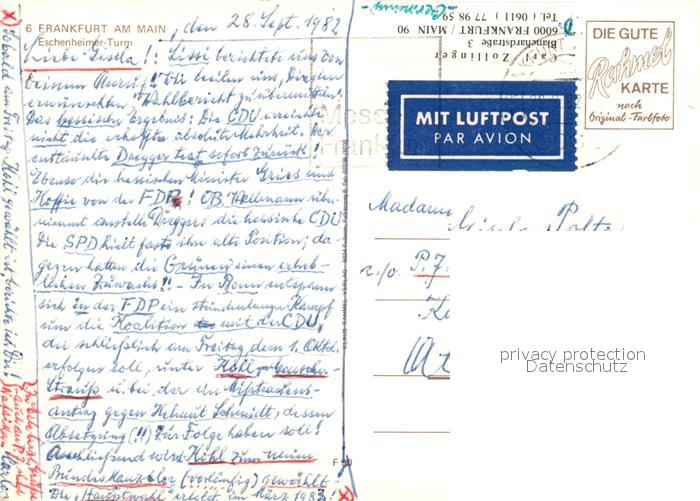 6 FRANKFURT AM MAIN
Eschenheimer-Turm
, den 28. Sept. 1982
Liebe Gisela! : Lissi berichtete uns von
Deinem Anruf! Wir beeilen uns, Dir den
erwünschten "Wahlbericht zu übermitteln".
Das hessische Ergebnis: Die CDU erreichte
nicht die erhoffte absolute Mehrheit. Der
enttäuschte Dregger trat sofort zurück!!
Ebenso die hessischen Minister Gries und
Hoffie von der FDP! OB. Wallmann über-
nimmt anstelle Dreggers die hessische CDU
Die SPD hielt fast ihre alte Position; da
gegen hatten die Grünen einen erheb-
lichen Zuwachs!! - In Bonn entspann
sich in der FDP ein stundenlanger Kampf
um die Koalition mit der CDU,
die schließlich am Freitag, dem 1. Oktbr.
erfolgen soll, unter Kohl - Genscher -
Strauß u. bei der ein Mißtrauens-
antrag gegen Helmut Schmidt, dessen
Absetzung (!!) zur Folge haben soll!
Anschließend wird Kohl zum neuen
Bundeskanzler (vorläufig) gewählt -
Die "Hauptwahl" erfolgt im März 1983!
Sobald am Freitag Kohl gewählt ist, berichte ich Dir!
KLAUS RAHMEL VERLAG
F 90
Germany
Carl Zollinger
Blanchardstraße 3
6000 FRANKFURT / MAIN 90
Tel. 0611 / 77 98 59
MIT LUFTPOST
PAR AVION
DIE GUTE
Rahmel
KARTE
nach
Original-Farbfoto
Madame
c/o. P.J.
privacy protection
Datenschutz